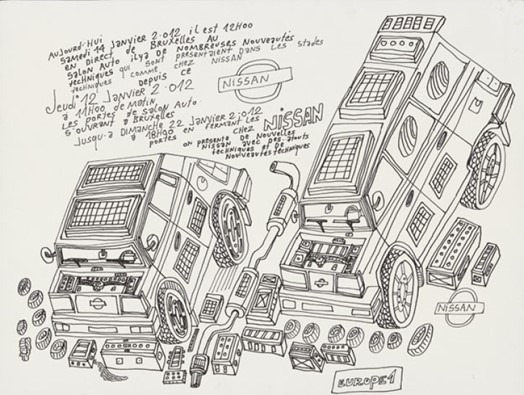 Aujourd'Hui
Samedi 14 Janvier 2.012 il est 12H00
en direct de Bruxelles Au
Salon Auto il y a de nombreuses nouveautés
techniques qui sont présentaient dans les stades
techniques comme chez Nissan
depuis ce
Jeudi 12 Janvier 2.012
à 11H00 de Matin
Les portes de Salon Auto
s'ouvrant à Bruxelles
Jusqu'a Dimanche 22 Janvier 2.012
à 18H00 en fermant les
portes
NISSAN
on présente chez
Nissan de nouvelle
avec des atouts
techniques et de
Nouveautés techniques
NISSAN
NISSAN
EUROPE1